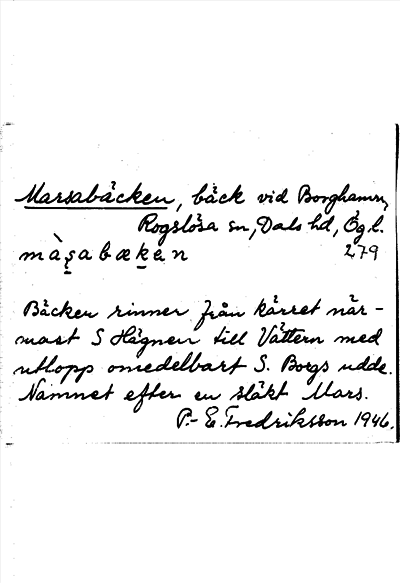 Marsabäcken, bäck vid Borghamn,
Rogslösa sn, Dals hd, Ög l.
màs̱abæḵən 279
Bäcken rinner från kärret när-
mast S Hägnen till Vättern med
utlopp omedelbart S. Borgs udde.
Namnet efter en släkt Mars.
P.-E. Fredriksson 1946.